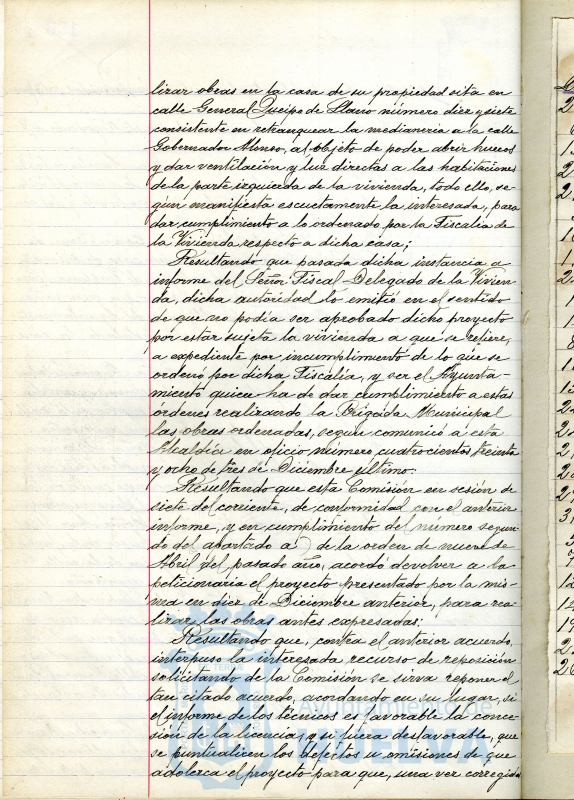 lizar obras en la casa de su propiedad sita en
calle General Queipo de Llano número diez y siete
consistente en retranquear la medianeria a la calle
Gobernador Alonso, al objeto de poder abrir huecos
y dar ventilación y luz directas a las habitaciones
de la parte izquierda de la vivienda, todo ello, se-
gún manifiesta escuetamente la interesada, para
dar cumplimiento a lo ordenado por la Fiscalía de
la Vivienda respecto a dicha casa;
Resultando que pasada dicha instancia a
informe del Señor Fiscal Delegado de la Vivien-
da, dicha autoridad lo emitió en el sentido
de que no podía ser aprobado dicho proyecto
por estar sujeta la vivienda a que se refiere,
a expediente por incumplimiento de lo que se
ordenó por dicha Fiscalía, y ser el Ayunta-
miento quien ha de dar cumplimiento a estas
órdenes realizando la Brigada Municipal
las obras ordenadas, según comunicó a esta
Alcaldía en oficio número cuatrocientos treinta
y ocho de tres de Diciembre último.
Resultando que esta Comisión en sesión de
siete del corriente, de conformidad con el anterior
informe, y en cumplimiento del número segun-
do del apartado a) de la orden de nueve de
Abril del pasado año, acordó devolver a la
peticionaria el proyecto presentado por la mis-
ma en diez de Diciembre anterior, para rea-
lizar las obras antes expresadas;
Resultando que, contra el anterior acuerdo,
interpuso la interesada recurso de reposición
solicitando de la Comisión se sirva reponer el
tan citado acuerdo, acordando en su lugar, si
el informe de los técnicos es favorable la conce-
sión de la licencia, y si fuera desfavorable, que
se puntualicen los defectos u omisiones de que
adolezca el proyecto para que, una vez corregidos
Ayuntamiento de
HUELVA